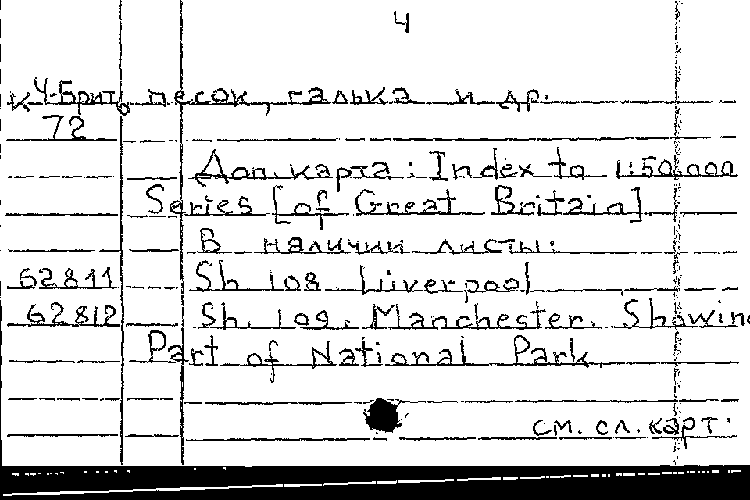 4
К Ч-Брит. песок, галька и др.
72
Доп. карта: Index to 1:50.000
Series [of Great Britain]
В наличии листы:
62811 Sh 108 Liverpool
62812 Sh. 109. Manchester. Showing
Part of National Park.
см. сл. карт.